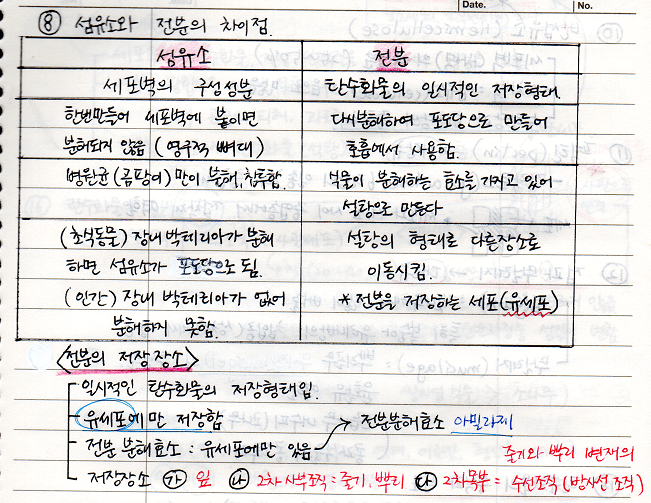 Date.
No.
⑧ 섬유소와 전분의 차이점.
섬유소
전분
세포벽의 구성성분
탄수화물의 일시적인 저장형태.
한번만들어 세포벽에 붙이면
다시분해하여 포도당으로 만들어
분해되지 않음 (영구적 뼈대)
호흡에서 사용함.
병원균(곰팡이)만이 분해, 침투함.
식물이 분해하는 효소를 가지고 있어
설탕으로 만든다
(초식동물) 장내 박테리아가 분해
설탕의 형태로 다른장소로
하면 섬유소가 포도당으로 됨.
이동시킴.
(인간) 장내 박테리아가 없어
*전분을 저장하는 세포(유세포)
분해하지 못함.
<전분의 저장장소>
일시적인 탄수화물의 저장형태임.
유세포에만 저장함
전분분해효소 아밀라제
전분 분해효소 : 유세포에만 있음
줄기와 뿌리 변재의
저장장소 ㉮ 잎 ㉯ 2차 사부조직 = 줄기, 뿌리 ㉰ 2차목부 = 수선조직 (방사선 조직)